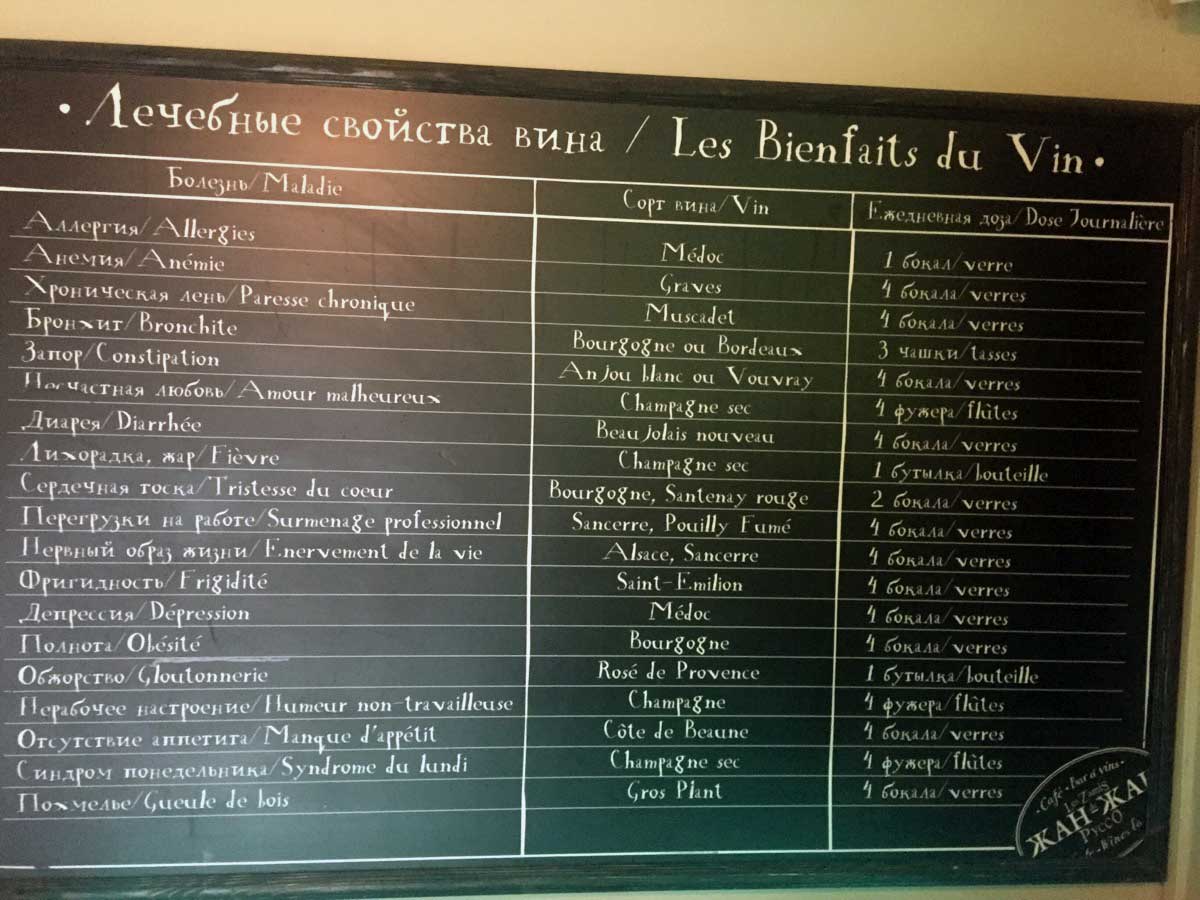 • Лечебные свойства вина / Les Bienfaits du Vin •
Болезнь/Maladie Сорт вина/Vin Ежедневная доза/Dose Journalière
Аллергия/Allergies Médoc 1 бокал/verre
Анемия/Anémie Graves 4 бокала/verres
Хроническая лень/Paresse chronique Muscadet 4 бокала/verres
Бронхит/Bronchite Bourgogne ou Bordeaux 3 чашки/tasses
Запор/Constipation Anjou blanc ou Vouvray 4 бокала/verres
Несчастная любовь/Amour malheureux Champagne sec 4 фужера/flûtes
Диарея/Diarrhée Beaujolais nouveau 4 бокала/verres
Лихорадка, жар/Fièvre Champagne sec 1 бутылка/bouteille
Сердечная тоска/Tristesse du coeur Bourgogne, Santenay rouge 2 бокала/verres
Перегрузки на работе/Surmenage professionnel Sancerre, Pouilly Fumé 4 бокала/verres
Нервный образ жизни/Enervement de la vie Alsace, Sancerre 4 бокала/verres
Фригидность/Frigidité Saint-Emilion 4 бокала/verres
Депрессия/Dépression Médoc 4 бокала/verres
Полнота/Obésité Bourgogne 4 бокала/verres
Обжорство/Gloutonnerie Rosé de Provence 1 бутылка/bouteille
Нерабочее настроение/Humeur non-travailleuse Champagne 4 фужера/flûtes
Отсутствие аппетита/Manque d'appétit Côte de Beaune 4 бокала/verres
Синдром понедельника/Syndrome du lundi Champagne sec 4 фужера/flûtes
Похмелье/Gueule de bois Gros Plant 4 бокала/verres
• Café • Bar à vins •
ЖАН ЖА
РуссО